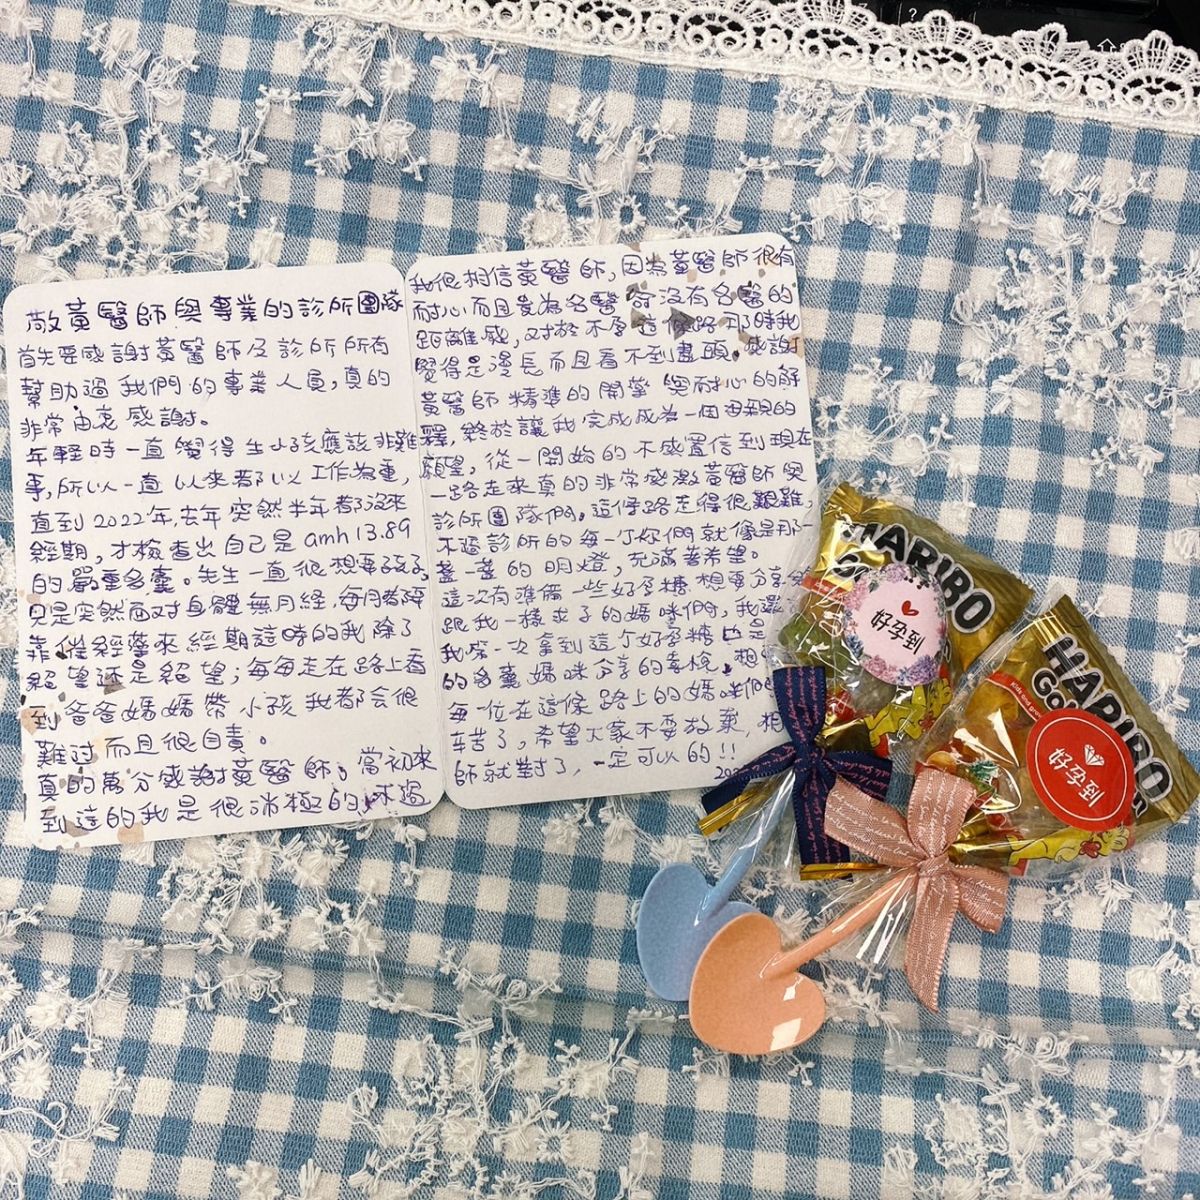 敬黃醫師與專業的診所團隊
首先要感謝黃醫師及診所所有
幫助過我們的專業人員,真的
非常由衷感謝。
年輕時一直覺得生小孩應該非難
事,所以一直以來都以工作為重,
直到2022年,去年突然半年都沒來
經期,才檢查出自己是amh 13.89
的嚴重多囊。先生一直很想要孩子,
只是突然面對身體無月經,每月都得
靠催經藥來經期這時的我除了
絕望還是絕望;每每走在路上看
到爸爸媽媽帶小孩我都會很
難过而且很自責。
真的萬分感謝黃醫師。當初來
到這的我是很消極的,不過
我很相信黃醫師,因為黃醫師很有
耐心而且身為名醫 沒有名醫的
距離感,对於不孕這條路那時我
覺得是漫長而且看不到盡頭。感謝
黃醫師精準的開藥與耐心的解
釋,終於讓我完成成為一個母親的
願望,從一開始的不感置信到現在
一路走來真的非常感激黃醫師與
診所團隊們。這條路走得很艱難,
不過診所的每一个你們就像是那一
盞一盞的明燈,充滿著希望。
這次有準備一些好孕糖想要分享
跟我一樣求子的媽咪們,我還
我第一次拿到這个好孕糖也是
的多囊媽咪分享的喜悅。想
每一位在這條路上的媽咪們
辛苦了,希望大家不要放棄,相
師就對了,一定可以的!!
HARIBO
好孕到
HARIBO
Kids and gr
好孕到